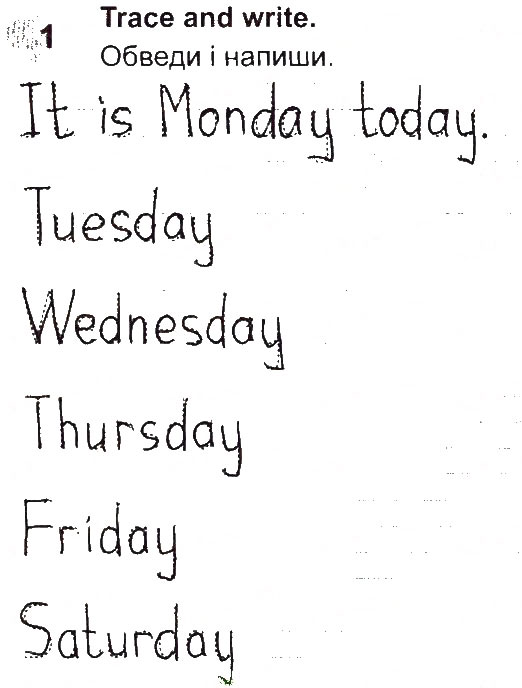 1 Trace and write.
Обведи і напиши.
It is Monday today.
Tuesday
Wednesday
Thursday
Friday
Saturday